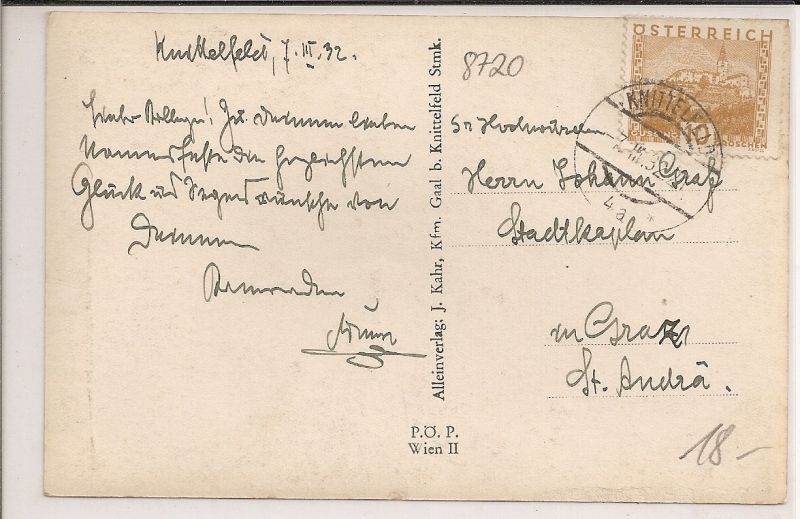 Knittelfeld, 7. III. 32.
Lieber Kollege! Zu Deinem lieben
Namensfeste die herzlichsten
Glück und Segenswünsche von
Deinem
Kameraden
Alleinverlag: J. Kahr, Kfm. Gaal b. Knittelfeld Stmk.
P.Ö.P.
Wien II
8720
ÖSTERREICH
10
GROSCHEN
KNITTELFELD
7.III.32
4a *
Sr Hochwürden
Herrn Johann Graf
Stadtkaplan
in Graz
St. Andrä.
18-